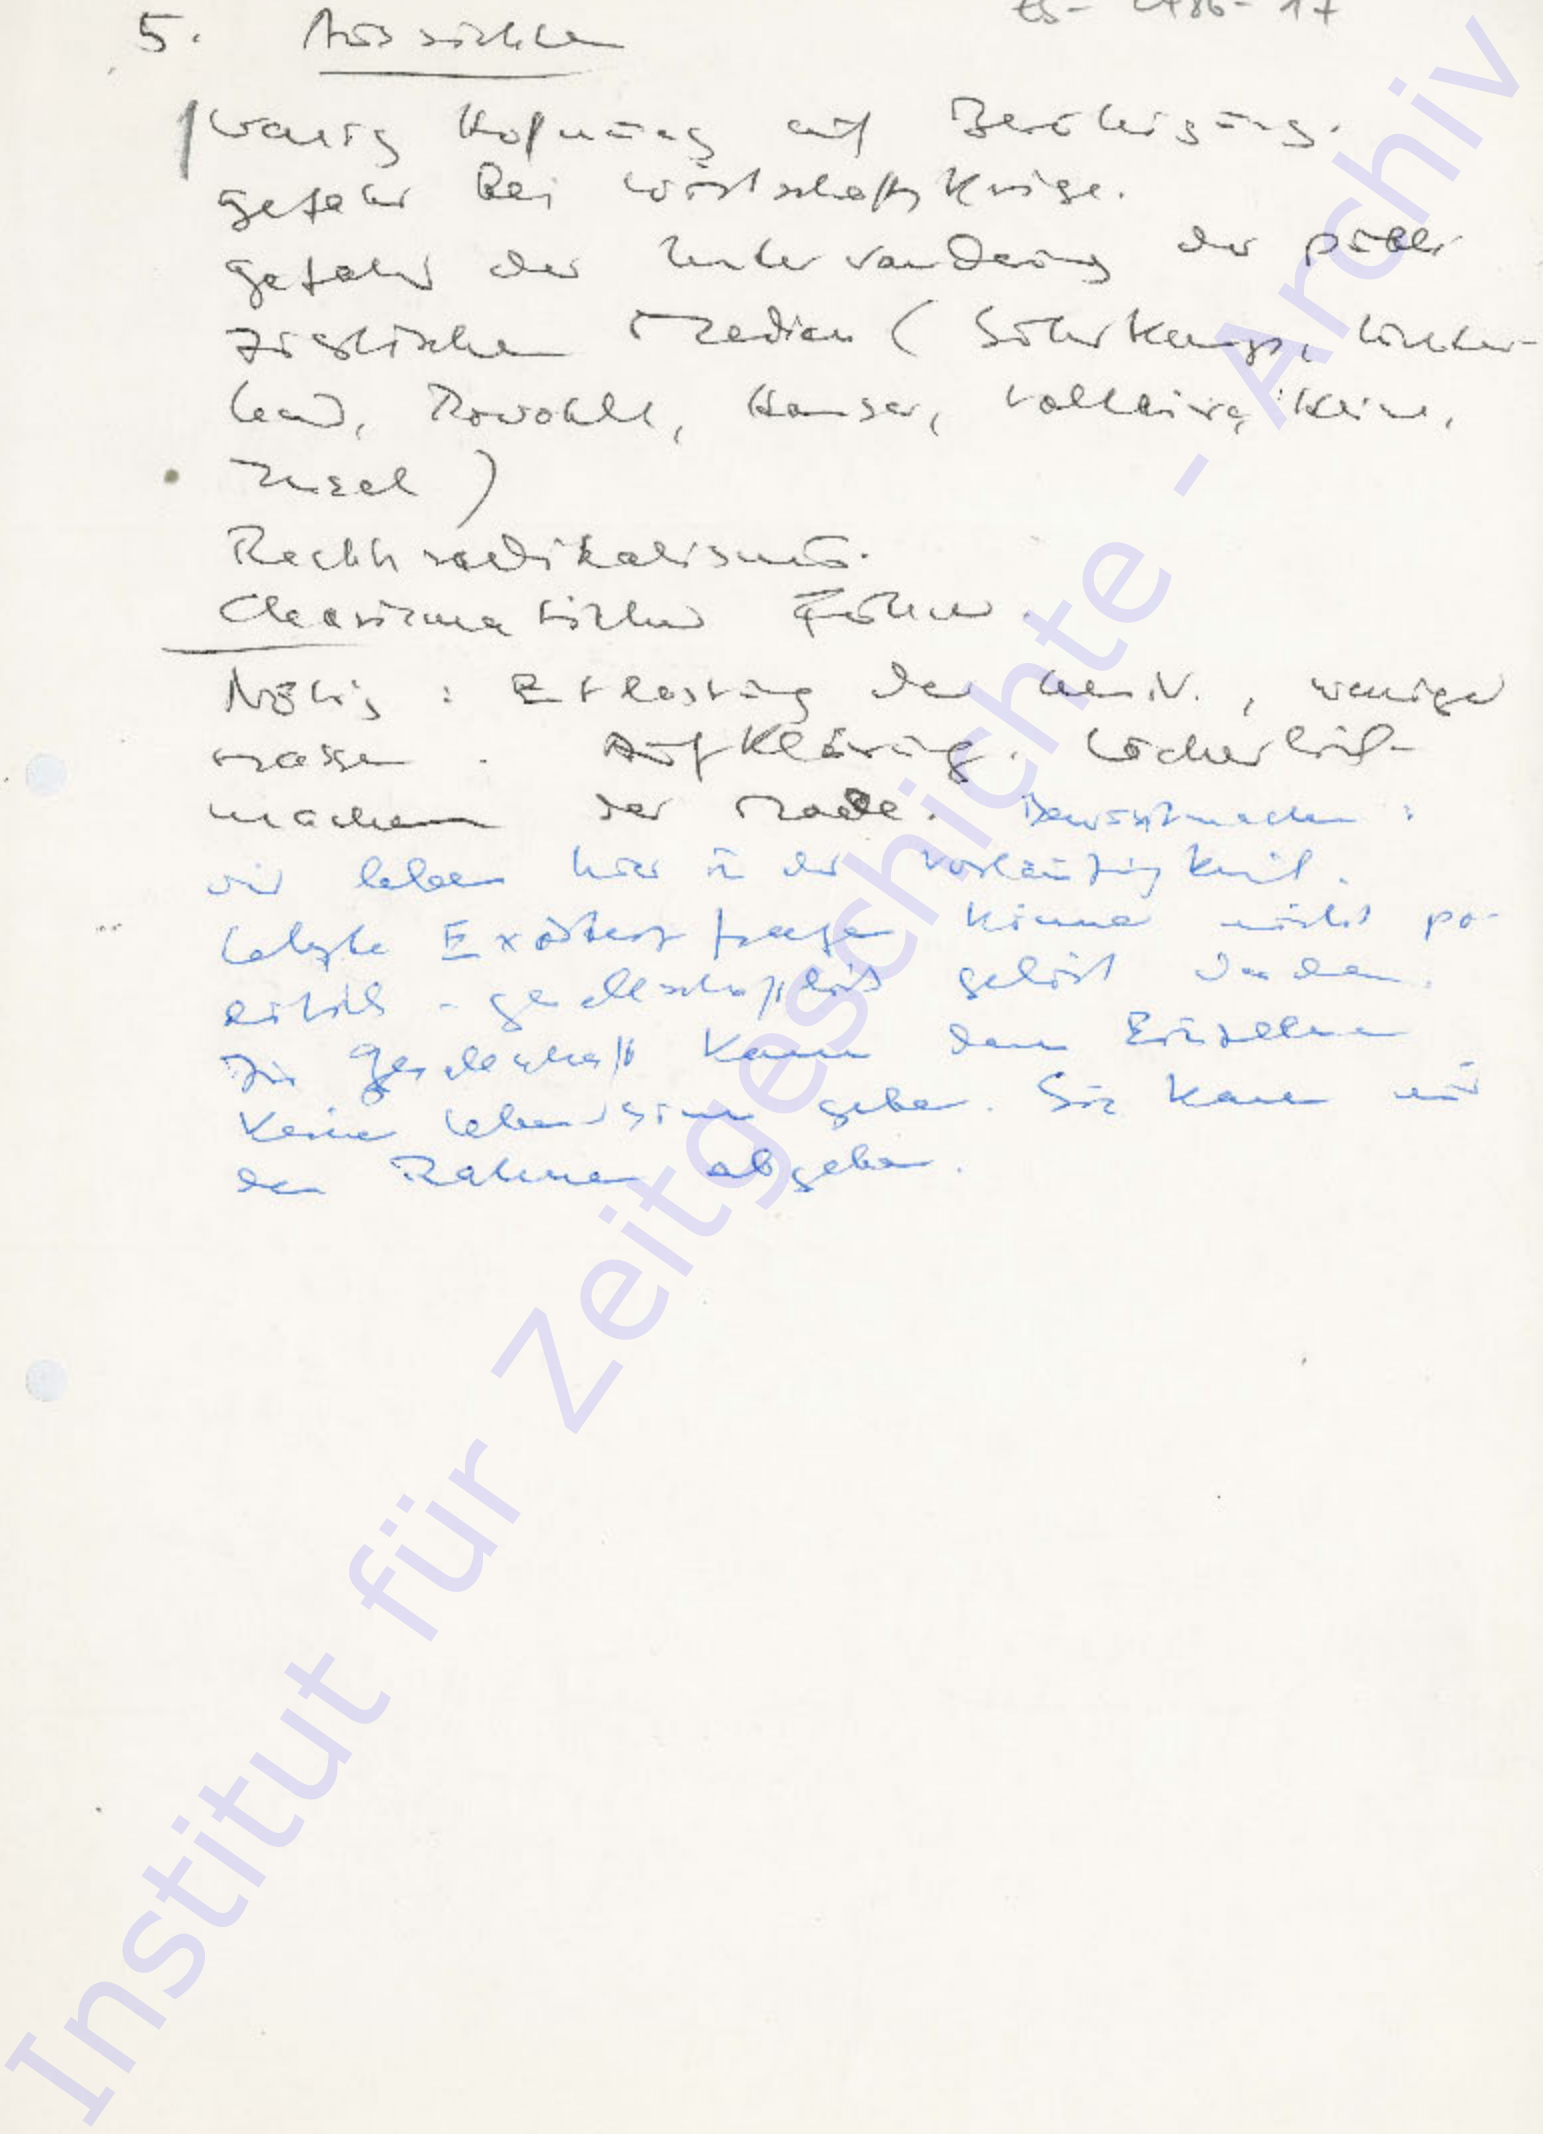 ES-2986-17
5. Aussichten
Wenig Hoffnung auf Beruhigung.
Gefahr bei Wirtschaftskrise.
Gefahr der Unterwanderung der publi-
zistischen Medien (Suhrkamp, Luchter-
hand, Rowohlt, Hanser,
Insel)
Rechtsradikalismus.
Charismatischer Führer.
Nötig: Entlastung der Univ., weniger
Massen. Aufklärung. Lächerlich-
machen der Mode. Bewusstmachen:
wir leben hier in der Vorläufigkeit.
Letzte Existenzfragen können nicht po-
litisch-gesellschaftlich gelöst werden.
Die Gesellschaft kann dem Einzelnen
keinen Lebenssinn geben. Sie kann nur
den Rahmen abgeben.
Institut für Zeitgeschichte - Archiv